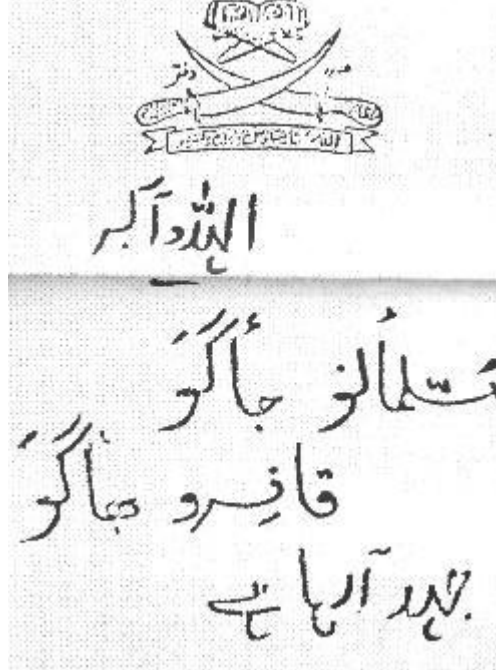 صدر دفتر
اللہ و آکبر
مسلمانو جاگو
قافِرو بھاگو
جہد آرہا ہے